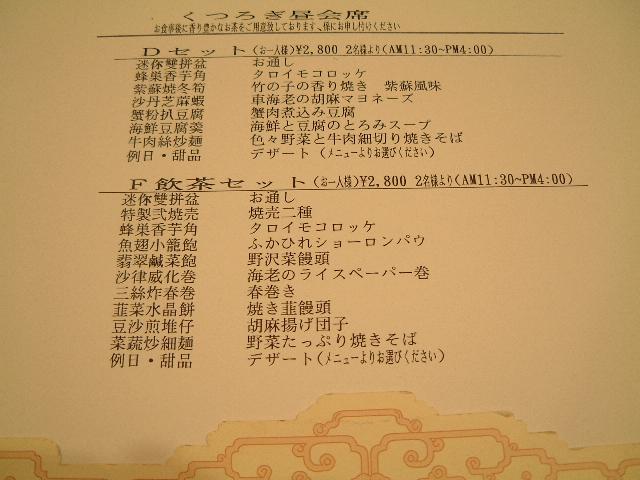 くつろぎ昼会席
お食事後に香り豊かなお茶をご用意致しております、係にお申し付けください
Dセット(お一人様)¥2,800 2名様より(AM11:30~PM4:00)
迷你雙拼盆 お通し
蜂巣香芋角 タロイモコロッケ
紫蘇焼冬筍 竹の子の香り焼き 紫蘇風味
沙丹芝麻蝦 車海老の胡麻マヨネーズ
蟹粉扒豆腐 蟹肉煮込み豆腐
海鮮豆腐羹 海鮮と豆腐のとろみスープ
牛肉絲炒麺 色々野菜と牛肉細切り焼きそば
例日・甜品 デザート(メニューよりお選びください)
F飲茶セット(お一人様)¥2,800 2名様より(AM11:30~PM4:00)
迷你雙拼盆 お通し
特製弐焼売 焼売二種
蜂巣香芋角 タロイモコロッケ
魚翅小籠飽 ふかひれショーロンパウ
翡翠鹹菜飽 野沢菜饅頭
沙律威化巻 海老のライスペーパー巻
三絲炸春巻 春巻き
韮菜水晶餅 焼き韮饅頭
豆沙煎堆仔 胡麻揚げ団子
菜蔬炒細麺 野菜たっぷり焼きそば
例日・甜品 デザート(メニューよりお選びください)